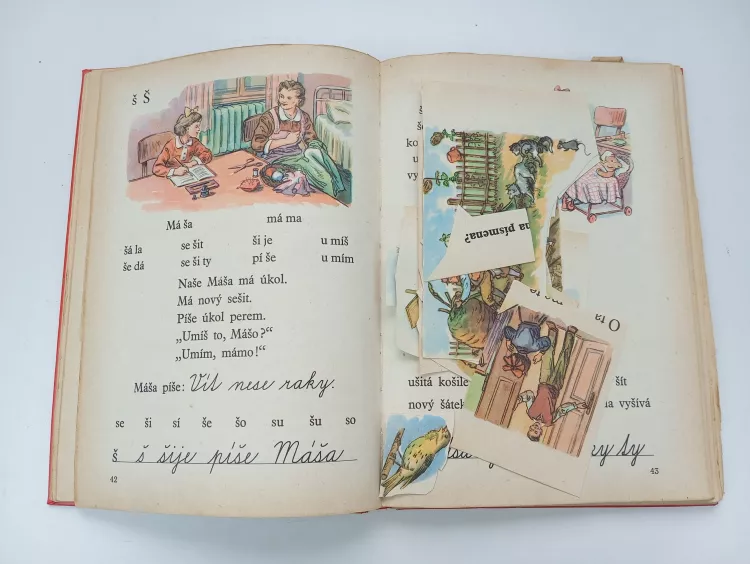 š Š
Má ša má ma
šá la se šit ši je u míš
še dá se ši ty pí še u mím
Naše Máša má úkol.
Má nový sešit.
Píše úkol perem.
„Umíš to, Mášo?“
„Umím, mámo!“
Máša píše: Vít nese raky.
se ši sí še šo su šu so
š š šije píše Máša
42
na písmena?
O ta
ušitá košile šít
nový šátek na vyšívá
ty
43